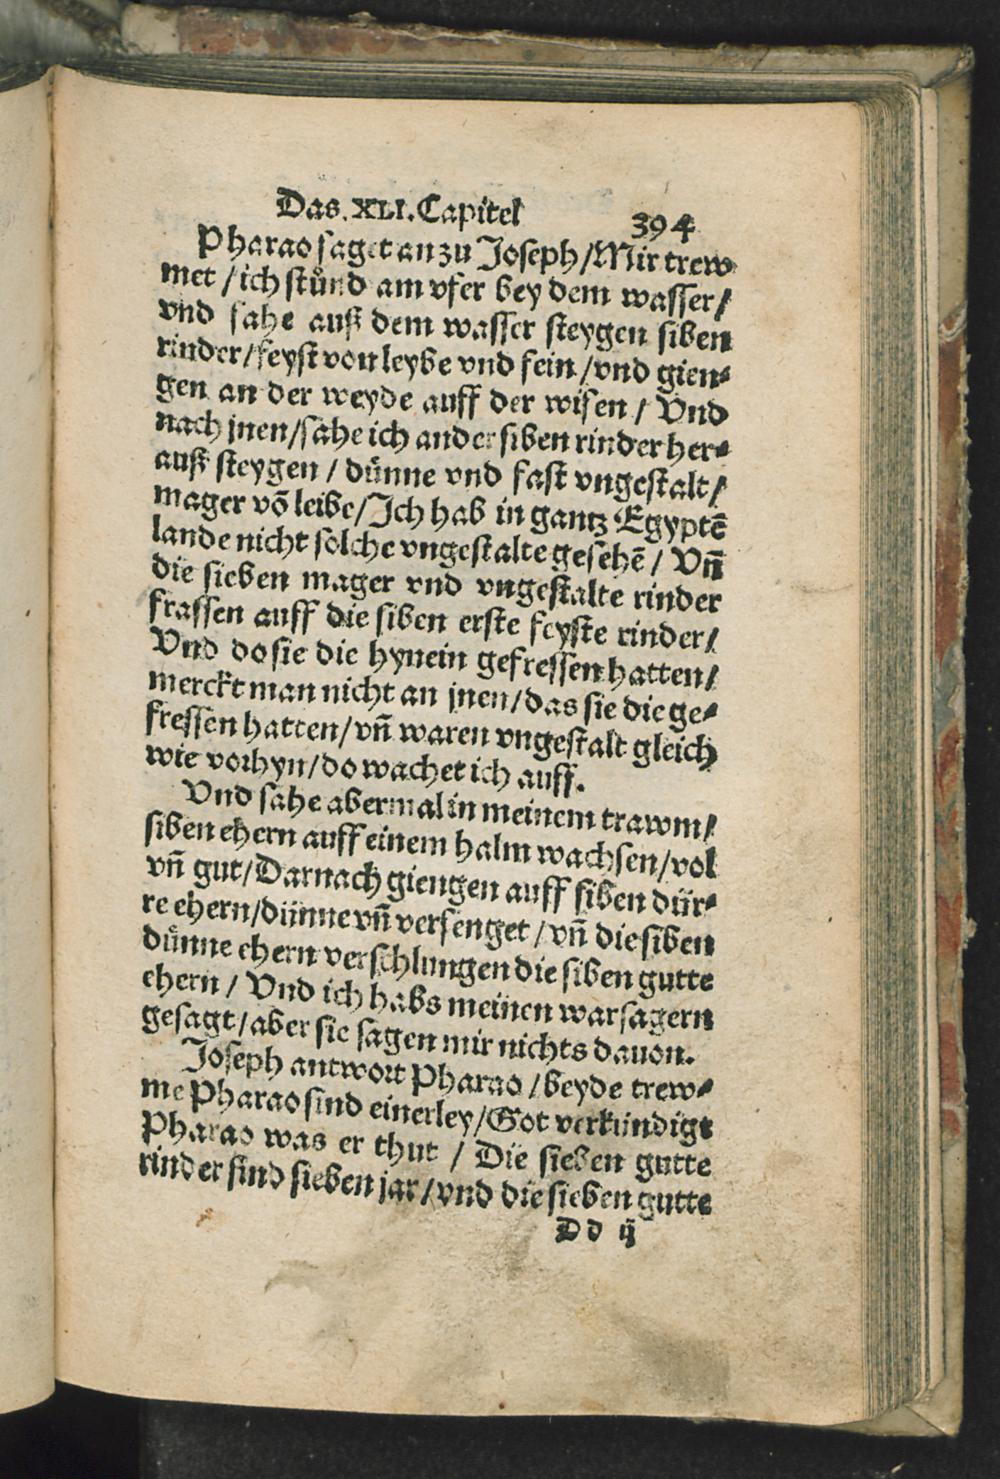 Das. XLI. Capitel 394
Pharao saget an zu Joseph/Mir trew
met / ich stuͦnd am vfer bey dem wasser/
vnd sahe auß dem wasser steygen siben
rinder/feyst von leybe vnd fein/vnd gien⸗
gen an der weyde auff der wisen / Vnd
nach jnen/sahe ich ander siben rinder her⸗
auß steygen / duͤnne vnd fast vngestalt/
mager võ leibe/Ich hab in gantz Egyptẽ
lande nicht solche vngestalte gesehẽ / Vñ
die sieben mager vnd vngestalte rinder
frassen auff die siben erste feyste rinder/
Vnd do sie die hynein gefressen hatten/
merckt man nicht an jnen/das sie die ge⸗
fressen hatten/vñ waren vngestalt gleich
wie vorhyn/do wachet ich auff.
Vnd sahe abermal in meinem trawm/
siben ehern auff einem halm wachsen/vol
vñ gut/Darnach giengen auff siben dür⸗
re ehern/dünne vñ versenget / vñ die siben
duͤnne ehern verschlungen die siben gutte
ehern / Vnd ich habs meinen warsagern
gesagt/aber sie sagen mir nichts dauon.
Joseph antwort Pharao /beyde trew⸗
me Pharao sind einerley/Got verkündigt
Pharao was er thut / Die sieben gutte
rinder sind sieben jar/vnd die sieben gutte
Dd ij